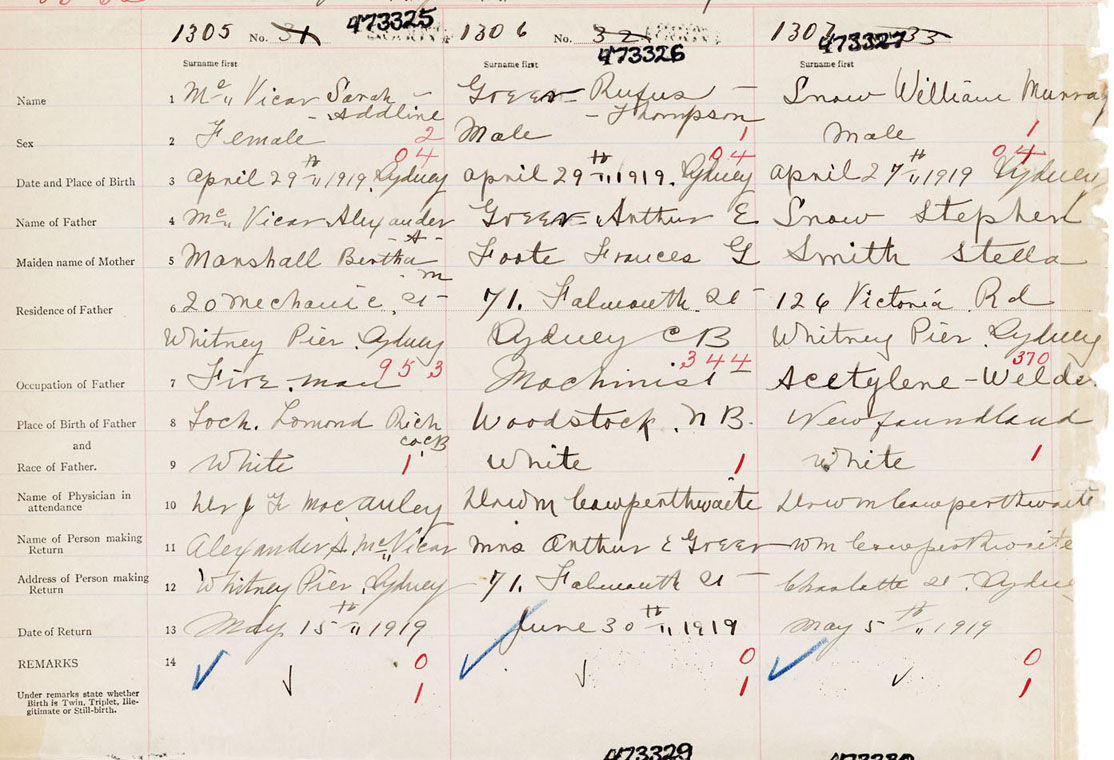 1305 No. 31 473325
1306 No. 32 473326
1307 33 473327
Surname first Surname first Surname first
Name 1 Mc Vicar Sarah – Greer Rufus – Snow William Murray
– Addline – Thompson
Sex 2 Female 2 Male 1 Male 1
04 04 04
Date and Place of Birth 3 April 29th 1919. Sydney April 29th 1919. Sydney April 27th 1919 Sydney
Name of Father 4 Mc Vicar Alexander Greer Arthur E Snow Stephen
– A –
Maiden name of Mother 5 Marshall Bertha Foote Frances G Smith Stella
. M
Residence of Father 6 20 Mechanic St – 71. Falmouth St – 126 Victoria Rd
Whitney Pier. Sydney Sydney CB Whitney Pier. Sydney
953 344 370
Occupation of Father 7 Fire man Machinist – Acetylene-Welder
Place of Birth of Father 8 Loch. Lomond Rich Woodstock. N B. Newfoundland
and Co CB
Race of Father. 9 White 1 White 1 White 1
Name of Physician in attendance 10 Dr J F MacAuley Dr W M Cowperthwaite Dr W M Cowperthwaite
Name of Person making Return 11 Alexander A. Mc Vicar Mrs Arthur E Greer Wm Cowperthwaite
Address of Person making Return 12 Whitney Pier. Sydney 71. Falmouth St – Charlotte St. Sydney
Date of Return 13 May 15th 1919 June 30th 1919 May 5th 1919
REMARKS 14 0 0 0
Under remarks state whether 1 1 1
Birth is Twin, Triplet, Ille-
gitimate or Still-birth.
473329